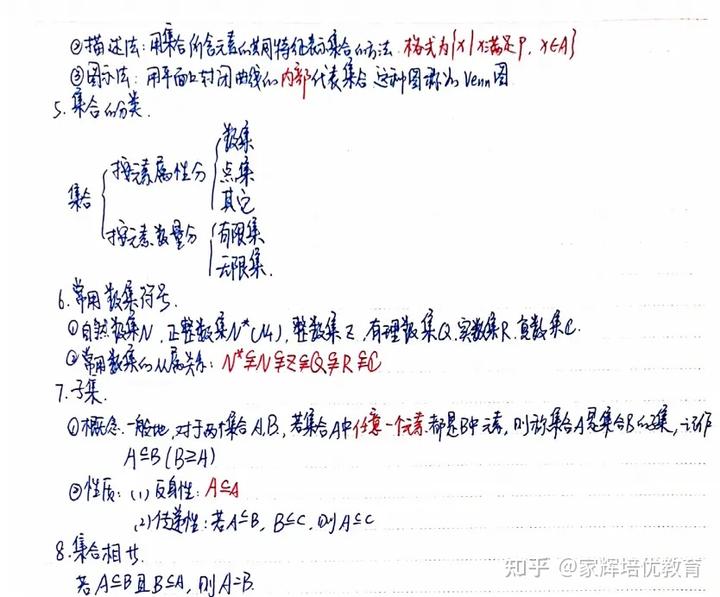 ②描述法:用集合所含元素的共同特征表示集合的方法.格式为{x|x满足P,x∈A}
③图示法:用平面上封闭曲线的内部代表集合.这种图称为Venn图
5.集合的分类.
集合
按元素属性分
数集
点集
其它
按元素数量分
有限集
无限集.
6.常用数集符号.
①自然数集N,正整数集N*(N+),整数集Z,有理数集Q.实数集R.复数集C.
②常用数集的从属关系:N*⫋N⫋Z⫋Q⫋R⫋C
7.子集.
①概念.一般地,对于两个集合A,B,若集合A中任意一个元素都是B中元素,则称集合A是集合B的子集,记作
A⊆B(B⊇A)
②性质:(1)反身性:A⊆A
(2)传递性:若A⊆B,B⊆C,则A⊆C
8.集合相等.
若A⊆B且B⊆A,则A=B.
知乎 @家辉培优教育